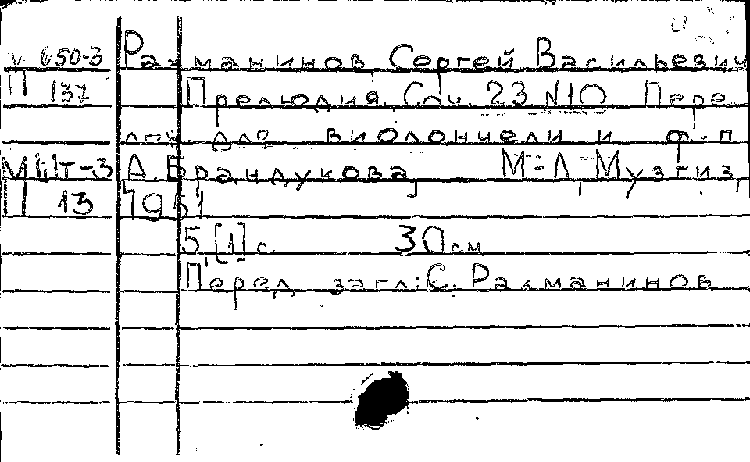 V 650-3 Рахманинов, Сергей Васильевич
П 137 Прелюдия. Соч. 23 №10. Пере
лож. для виолончели и ф-п
МШт-3 А. Брандукова. М-Л, Музгиз,
П 13 1951
5,[1] с. 30 см
Перед загл: С. Рахманинов